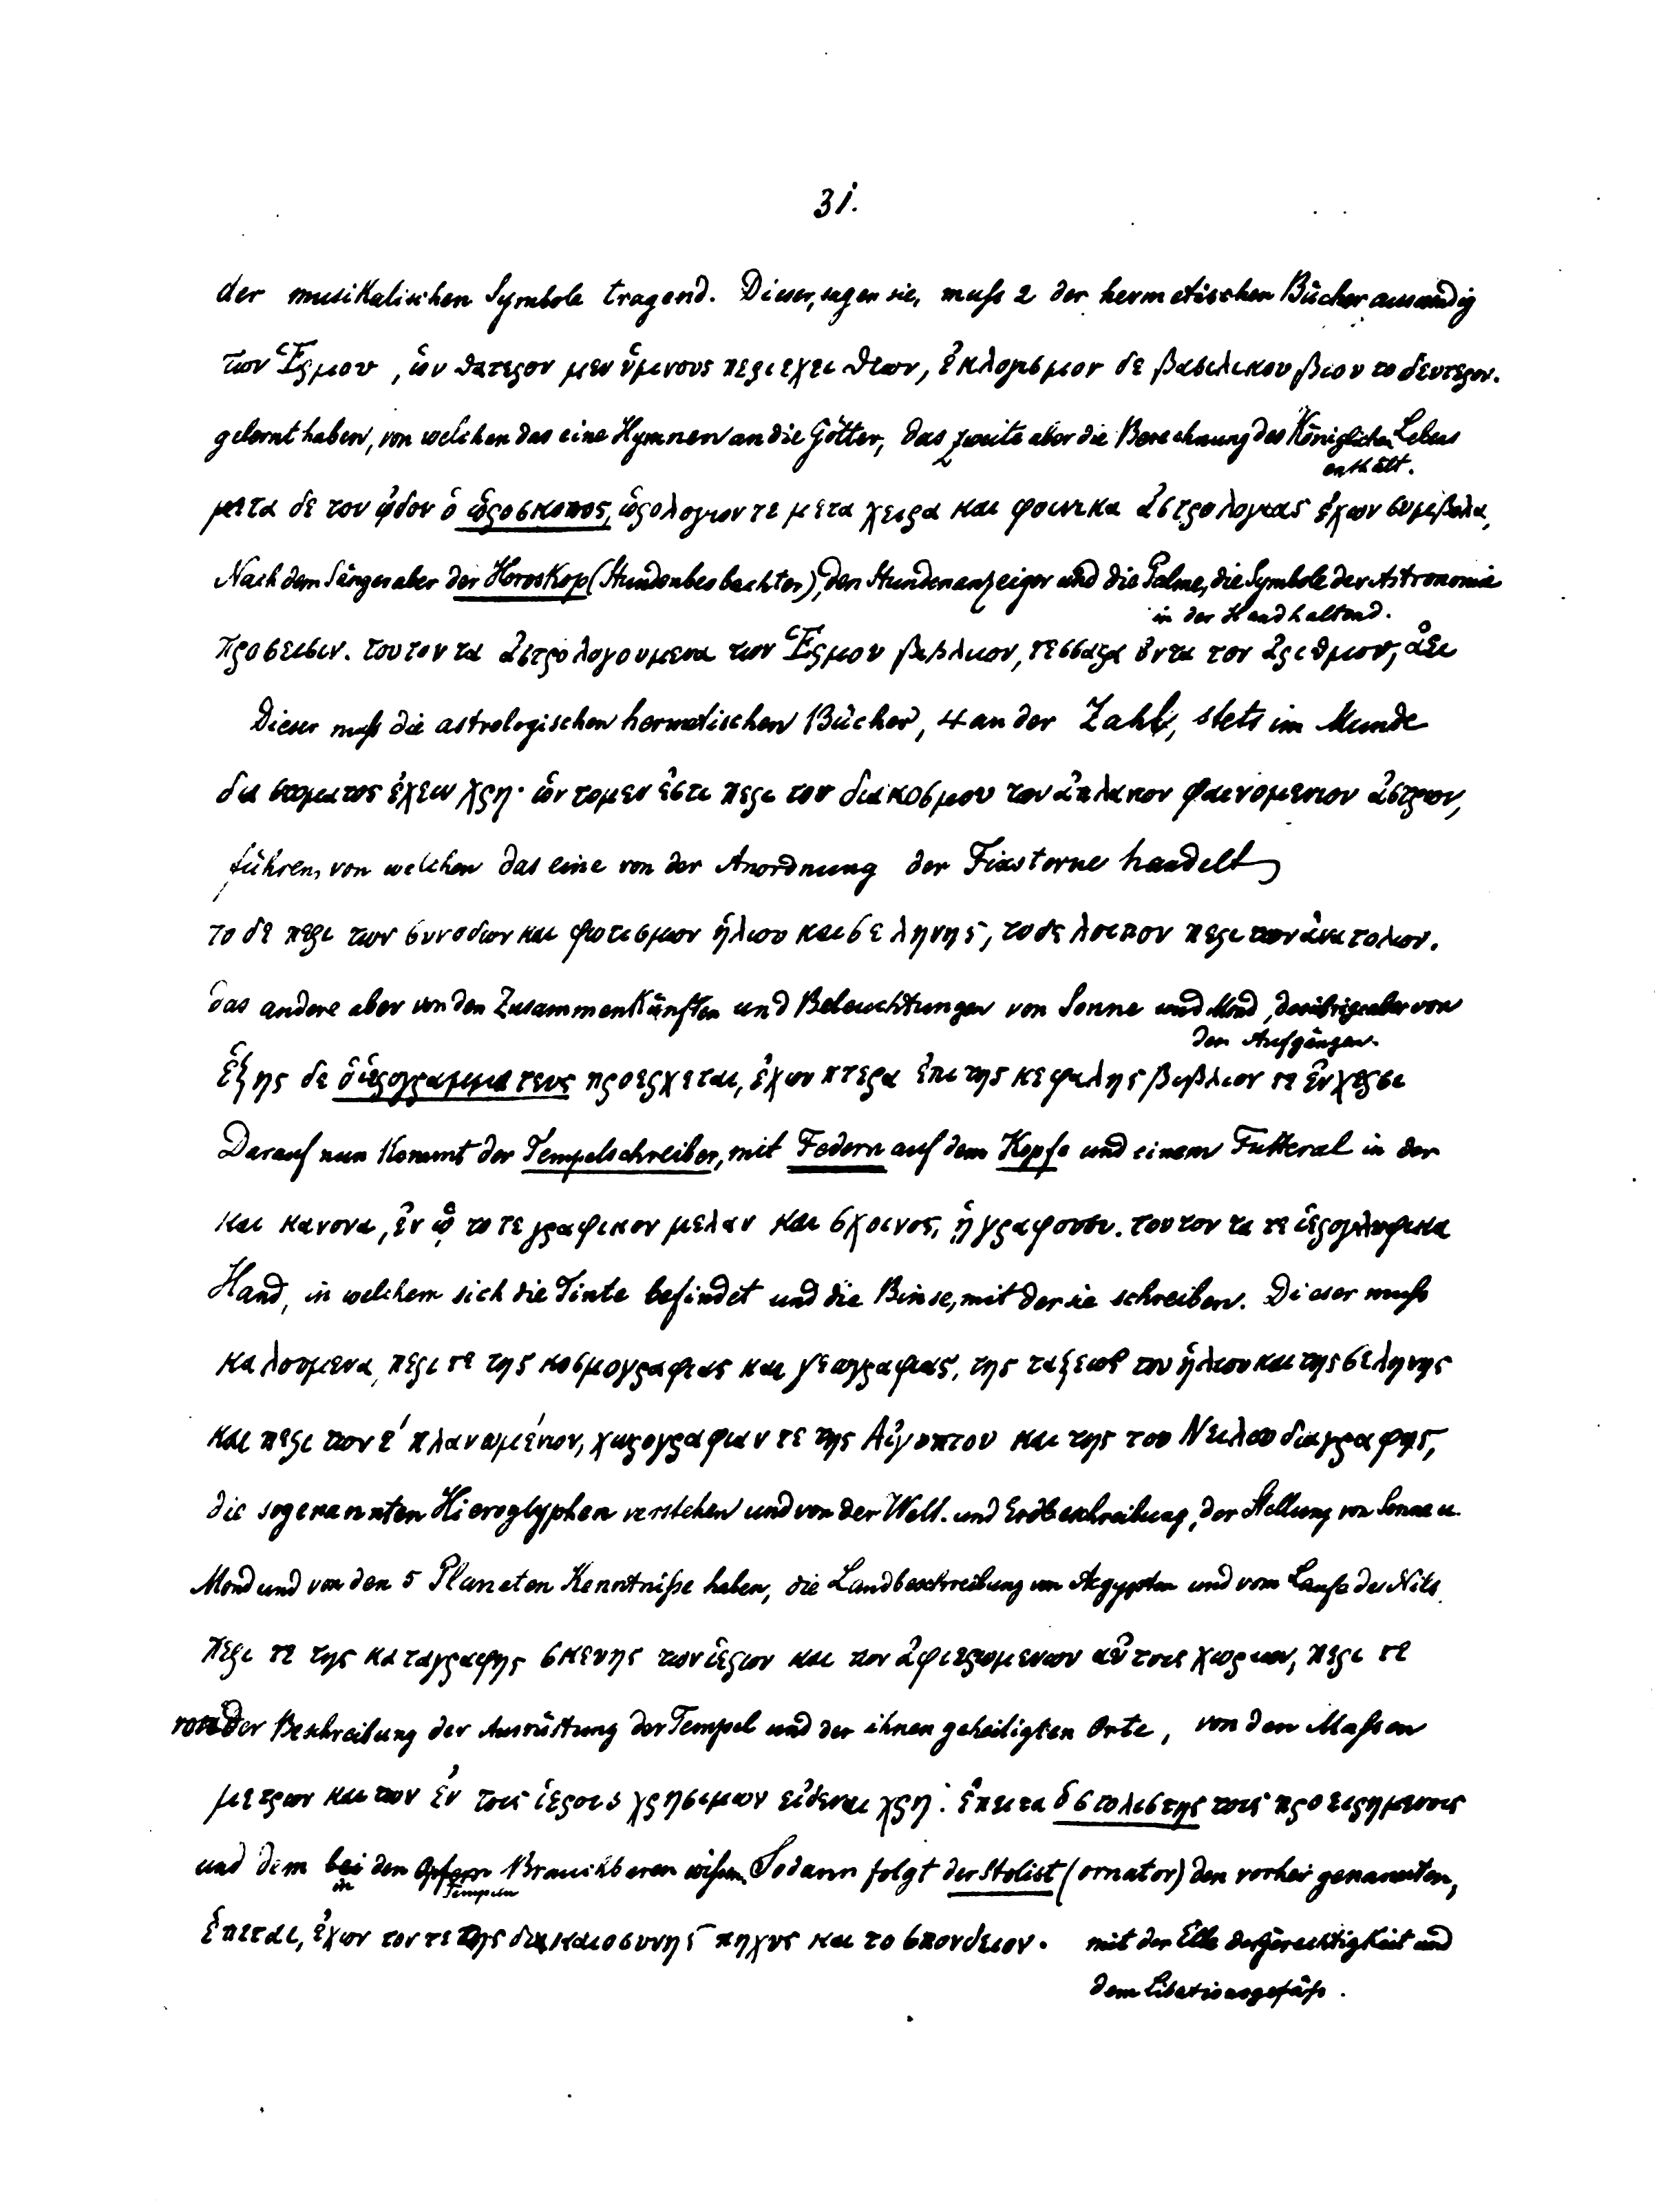 31.
der musikalischen Symbole tragend. Dieser, sagen sie, muſs 2 der hermetischen Bücher auswendig
των Ἑρμου, ὡν θατερον μεν ὑμνους περιεχει θεων, ἐκλογισμον δε βασιλικου βιου το δευτερον.
gelernt haben, von welchen das eine Hymnen an die Götter, das zweite aber die Berechnung des Königlichen Lebens
enthält.
μετα δε τον ᾠδον ὁ ὡροσκοπος, ὡρολογιον τε μετα χειρα και φοινικα ἀστρολογιας ἐχων συμβολα,
Nach dem Sänger aber der Horoskop (Stundenbeobachter), den Stundenanzeiger und die Palme, die Symbole der Astronomie
in der Hand haltend.
προσεισιν. τουτον τα ἀστρολογουμενα των Ἑρμου βιβλιων, τεσσαρα ὀντα τον ἀριθμον, ἀει
Dieser muſs die astrologischen hermetischen Bücher, 4 an der Zahl, stets im Munde
δια στοματος ἐχειν χρη· ὡν το μεν ἐστι περι του διακοσμου των ἀπλανων φαινομενων ἀστρων,
führen, von welchen das eine von der Anordnung der Fixsterne handelt,
το δε περι των συνοδων και φωτισμων ἡλιου και σεληνης, το δε λοιπον περι των ἀνατολων.
das andere aber von den Zusammenkünften und Beleuchtungen von Sonne und Mond, das übrige aber von
den Aufgängen.
ἑξης δε ὁ ἱερογραμματευς προερχεται, ἐχων πτερα ἐπι της κεφαλης βιβλιον τε ἐν χερσι
Darauf nun kommt der Tempelschreiber, mit Federn auf dem Kopfe und einem Futteral in der
και κανονα, ἐν ᾡ το τε γραφικον μελαν και σχοινος, ᾑ γραφουσι. τουτον τα τε ἱερογλυφικα
Hand, in welchem sich die Tinte befindet und die Binse, mit der sie schreiben. Dieser muſs
καλουμενα, περι τε της κοσμογραφιας και γεωγραφιας, της ταξεως του ἡλιου και της σεληνης
και περι των ε' πλανωμενων, χωρογραφιαν τε της Αἰγυπτου και της του Νειλου διαγραφης,
die sogenannten Hieroglyphen verstehen und von der Welt- und Erdbeschreibung, der Stellung von Sonne u.
Mond und von den 5 Planeten Kenntniſse haben, die Landbeschreibung von Aegypten und vom Laufe des Nils
περι τε της καταγραφης σκευης των ἱερων και των ἀφιερωμενων αὐτοις χωριων, περι τε
von der Beschreibung der Ausrüstung der Tempel und der ihnen geheiligten Orte, von den Maſsen
μετρων και των ἐν τοις ἱεροις χρησιμων εἰδεναι χρη. ἐπειτα ὁ στολιστης τοις προειρημενοις
und dem bei den Opfern Brauchbaren wiſsen. Sodann folgt der Stolist (ornator) den vorher genannten,
in Tempeln
ἑπεται, ἐχων τον τε της δικαιοσυνης πηχυς και το σπονδειον. mit der Elle der Gerechtigkeit und
dem Libationsgefäſs.